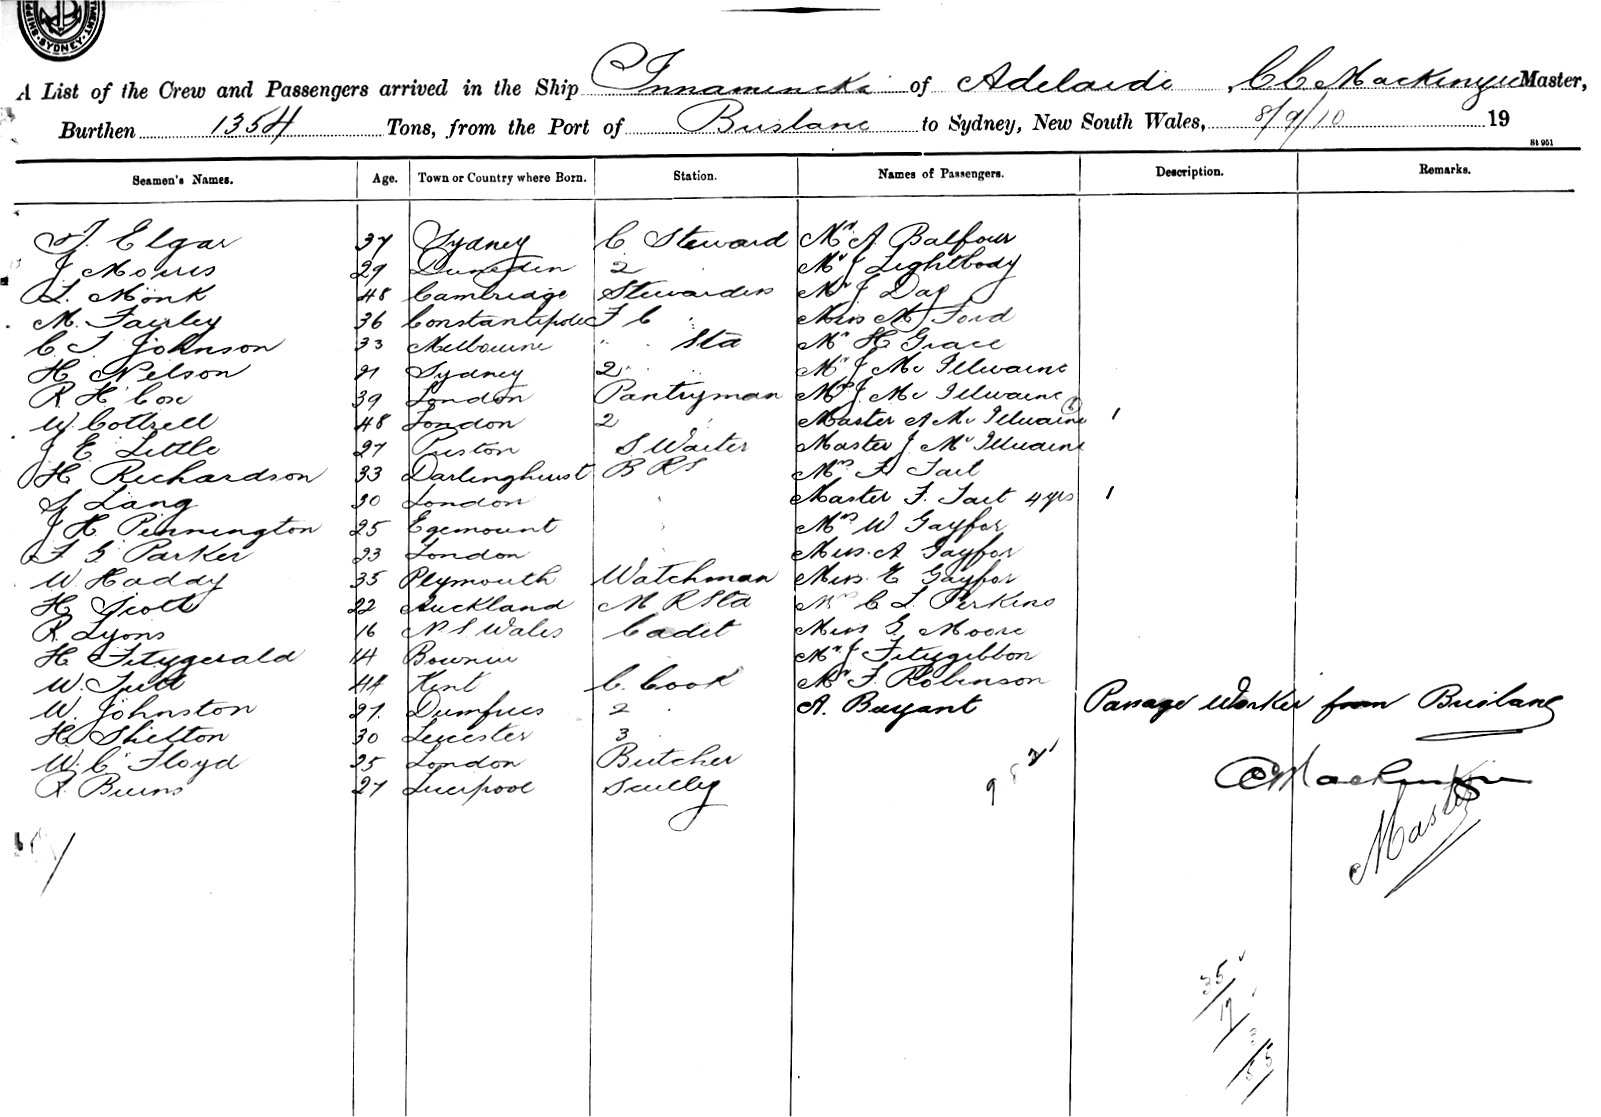 SYDNEY
A List of the Crew and Passengers arrived in the Ship Innamincka of Adelaide, C C Mackenzie Master,
Burthen 1354 Tons, from the Port of Brisbane to Sydney, New South Wales, 8/9/10 19
St 951
Seamen's Names. Age. Town or Country where Born. Station. Names of Passengers. Description. Remarks.
Elgar 37 Sydney C Steward Mr A. Balfour
J Morris 29 Dunedin 2 " Mr J Lightbody
L. Monk 48 Cambridge Stewardess Mr J Day
M. Fairley 36 Constantinople F C " Miss M Ford
C. T. Johnson 33 Melbourne " " Sta Mr H Grace
H Nelson 21 Sydney 2 " " Mr J Mc Illwaine
R H Cox 39 London Pantryman Mrs J Mc Illwaine
W Cottrell 48 London 2 " Master A Mc Illwaine 1
J E Little 27 Preston S Waiter Master J Mc Illwaine
H Richardson 33 Darlinghurst B R S Mrs F Tait
J Lang 30 London " Master F. Tait 4 yrs 1
J H Pennington 25 Egremount " Mrs W Gayfor
F G Parker 23 London Miss A Gayfor
W Haddy 35 Plymouth Watchman Miss E Gayfor
H Scott 22 Auckland M R Sta C L Perkins
R Lyons 16 N S Wales Cadet Miss G Moore
H Fitzgerald 14 Mr J Fitzgibbon
W. Tutt 44 Kent C. Cook Mr F. Robinson
W. Johnston 27 Dumfries 2 " A. Bryant Passage Worker from Brisbane
H Shelton 30 Leicester 3 "
W. C Floyd 25 London Butcher
Burns 27 Liverpool Scully
C C Mackenzie
Master
35
17
3
55